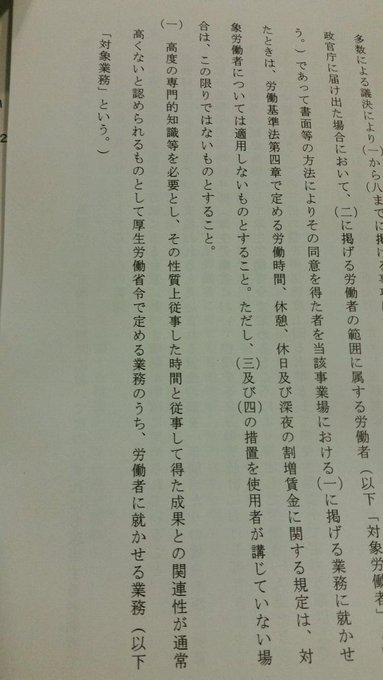 多数による議決により(一)から(八)までに掲げる事項
政官庁に届け出た場合において、(二)に掲げる労働者の範囲に属する労働者(以下「対象労働者」
う。)であって書面等の方法によりその同意を得た者を当該事業場における(一)に掲げる業務に就かせ
たときは、労働基準法第四章で定める労働時間、休憩、休日及び深夜の割増賃金に関する規定は、対
象労働者については適用しないものとすること。ただし、(三)及び(四)の措置を使用者が講じていない場
合は、この限りではないものとすること。
(一) 高度の専門的知識等を必要とし、その性質上従事した時間と従事して得た成果との関連性が通常
高くないと認められるものとして厚生労働省令で定める業務のうち、労働者に就かせる業務(以下
「対象業務」という。)